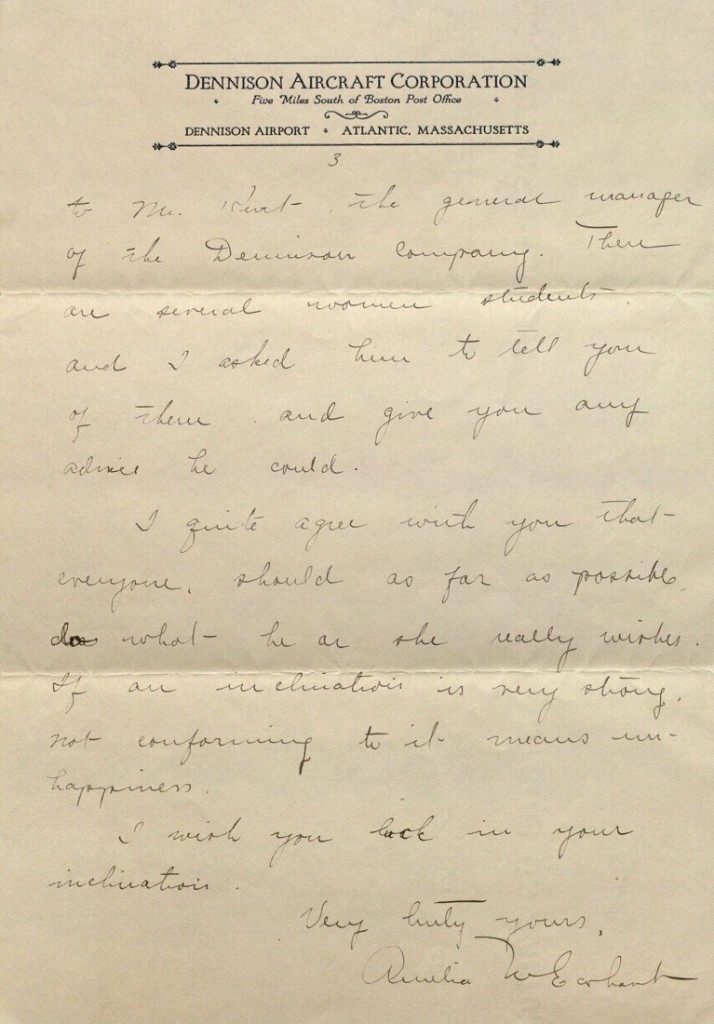 DENNISON AIRCRAFT CORPORATION
Five Miles South of Boston Post Office
DENNISON AIRPORT • ATLANTIC, MASSACHUSETTS
3
to Mr. the general manager
of the Dennison Company. There
are several women students
and I asked him to tell you
of them and give you any
advice he could.
I quite agree with you that
everyone, should as far as possible,
do what he or she really wishes.
If an inclination is very strong,
not conforming to it means un-
happiness.
I wish you luck in your
inclination.
Very truly yours,
Amelia M Earhart